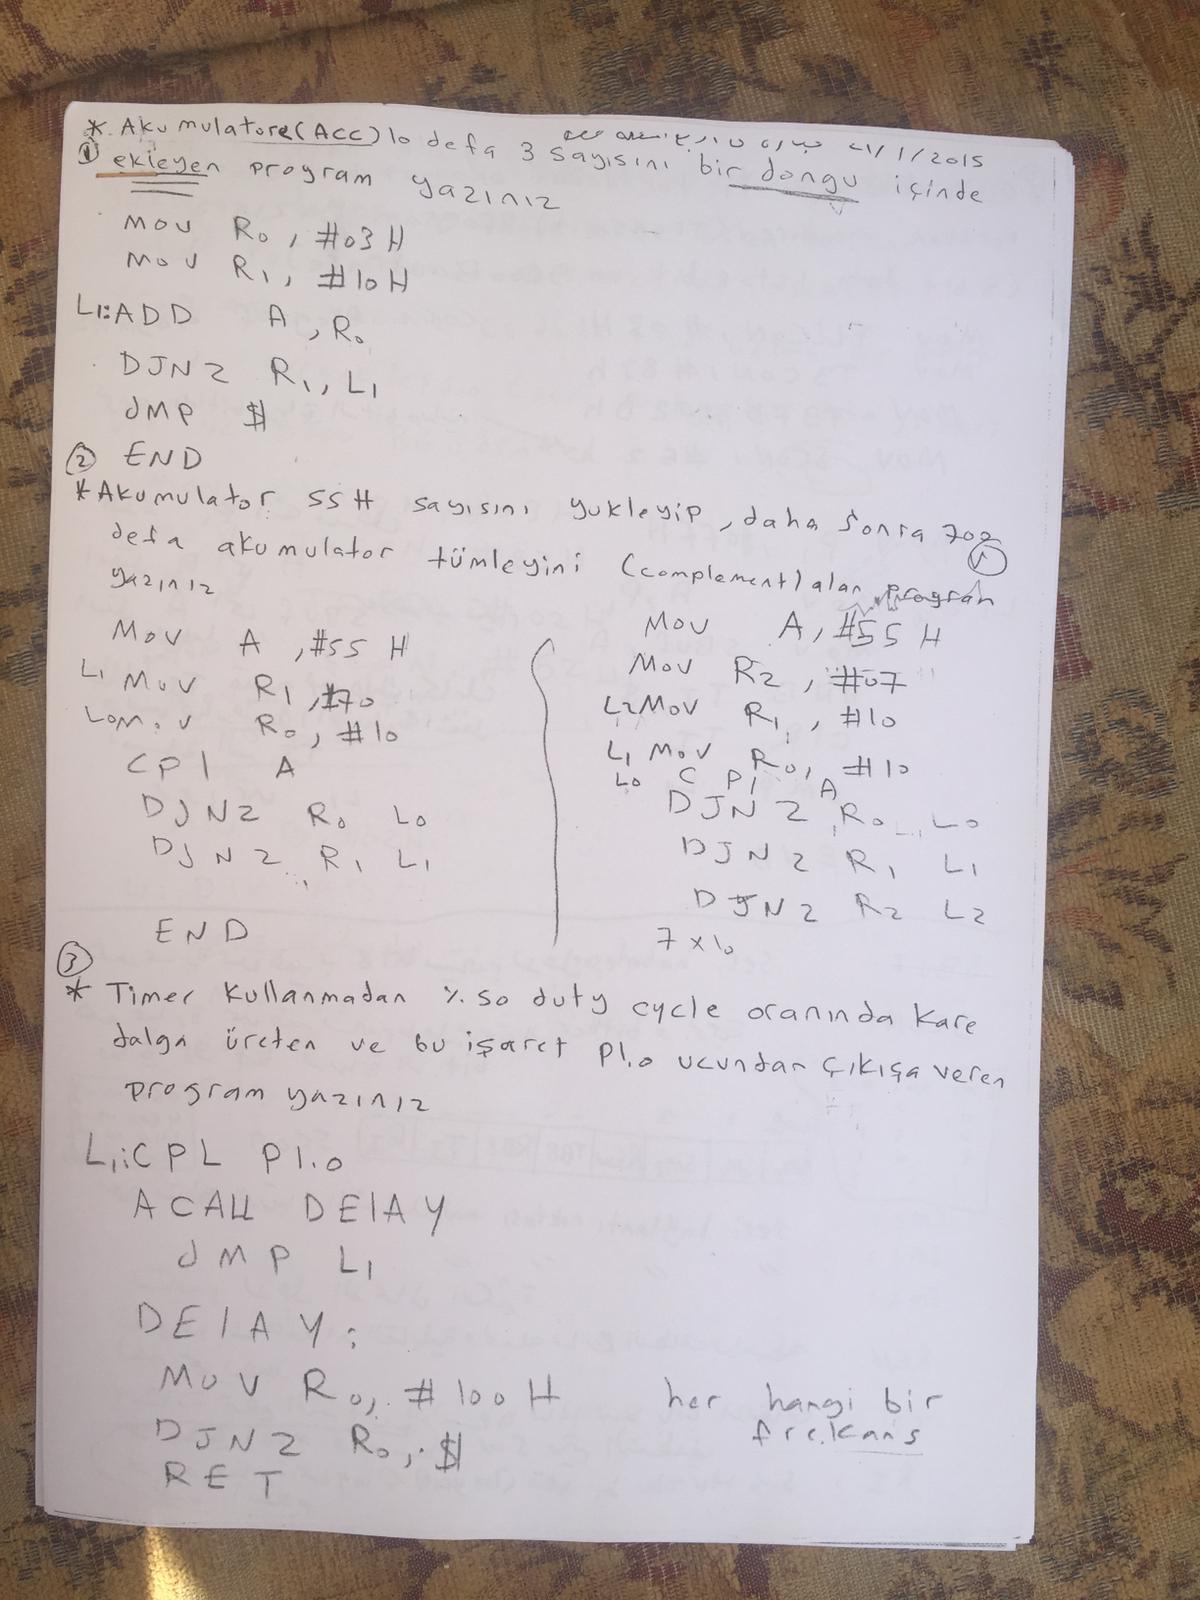 * Akumulatore (ACC) 10 defa 3 sayısını bir dongu içinde
21/1/2015
① ekleyen program yazınız
MOV R0, #03H
MOV R1, #10H
L1: ADD A, R0
DJNZ R1, L1
JMP $
② END
* Akumulator 55H sayısını yukleyip, daha sonra 700
defa akumulator tümleyini (complement) alan program
yazınız
MOV A, #55 H
L1 MOV R1, #70
L0 MOV R0, #10
CPl A
DJNZ R0 L0
DJNZ R1 L1
END
MOV A, #55 H
MOV R2, #07
L2 MOV R1, #10
L1 MOV R0, #10
L0 CPl A
DJNZ R0 L0
DJNZ R1 L1
DJNZ R2 L2
7 x 10
③
* Timer kullanmadan %50 duty cycle oranında kare
dalga üreten ve bu işaret P1.0 ucundan çıkışa veren
program yazınız
L1: CPL P1.0
ACALL DElAY
JMP L1
DElAY:
MOV R0, #100H her hangi bir
DJNZ R0, $ frekans
RET